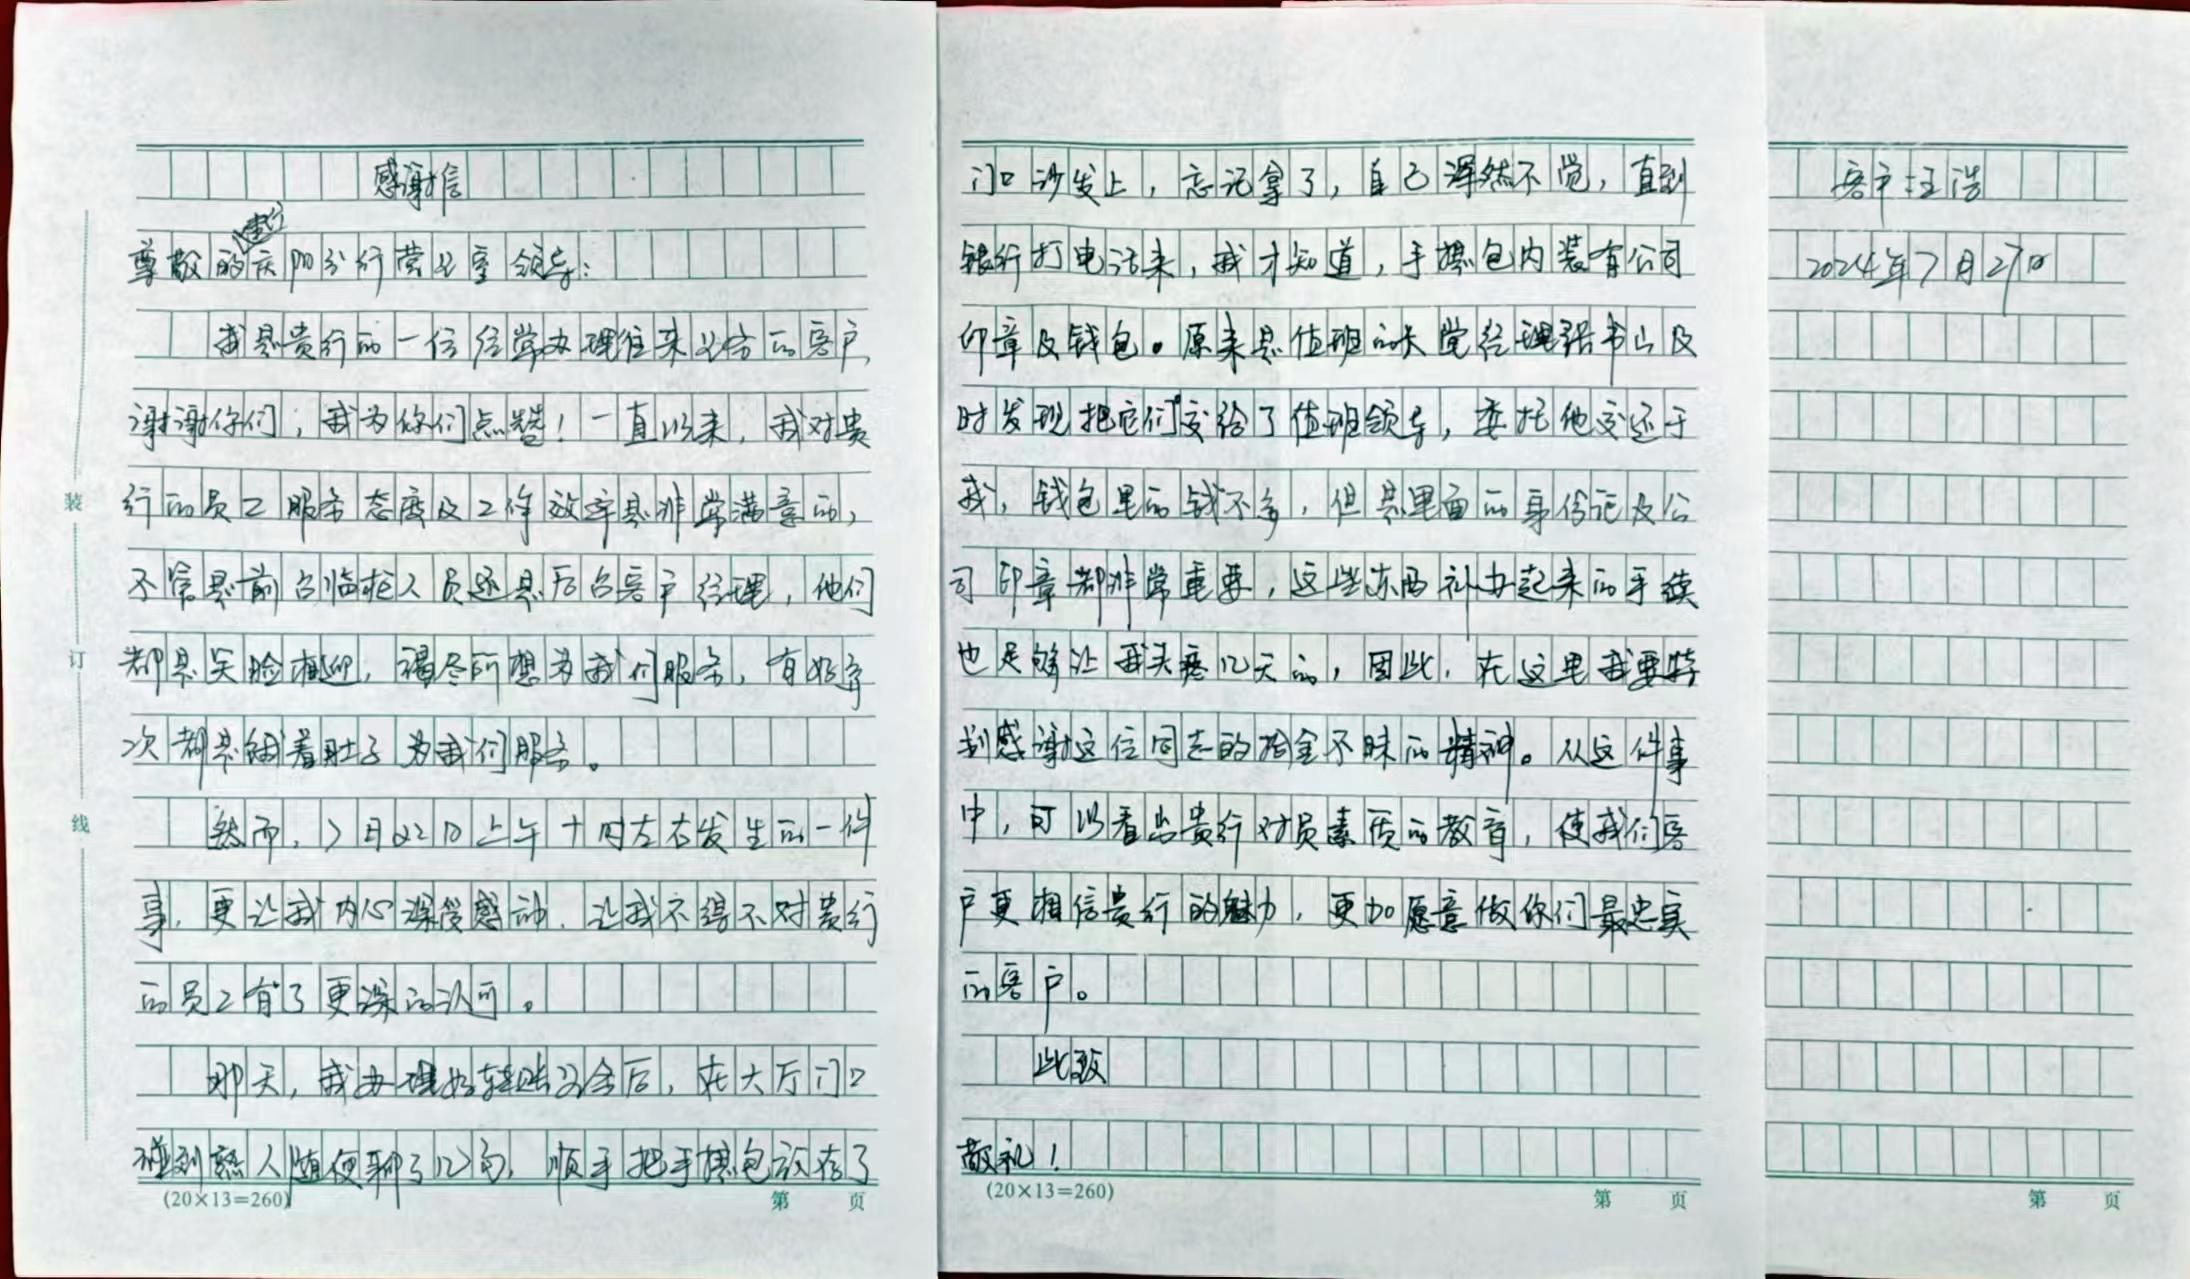 感谢信
建行
尊敬的庆阳分行营业室领导：
我是贵行的一位经常办理往来业务的客户，
谢谢你们，我为你们点赞！一直以来，我对贵
行的员工服务态度及工作效率是非常满意的，
不管是前台临柜人员还是后台客户经理，他们
都是笑脸相迎，竭尽所想为我们服务，有好几
次都是饿着肚子为我们服务。
然而，7月22日上午十时左右发生的一件
事，更让我内心深受感动，让我不得不对贵行
的员工有了更深的认可。
那天，我办理好转账业务后，在大厅门口
碰到熟人随便聊了几句，顺手把手提包放在了
(20×13=260)
第 页
装
订
线
门口沙发上，忘记拿了，自己浑然不觉，直到
银行打电话来，我才知道，手提包内装有公司
印章及钱包。原来是值班的大堂经理张书山及
时发现把它们交给了值班领导，委托他交还于
我，钱包里的钱不多，但是里面的身份证及公
司印章都非常重要，这些东西补办起来的手续
也足够让我头疼几天的，因此，在这里我要特
别感谢这位同志的拾金不昧的精神。从这件事
中，可以看出贵行对员素质的教育，使我们客
户更相信贵行的魅力，更加愿意做你们最忠实
的客户。
此致
敬礼！
(20×13=260)
第 页
客户：汪浩
2024年7月27日
第 页